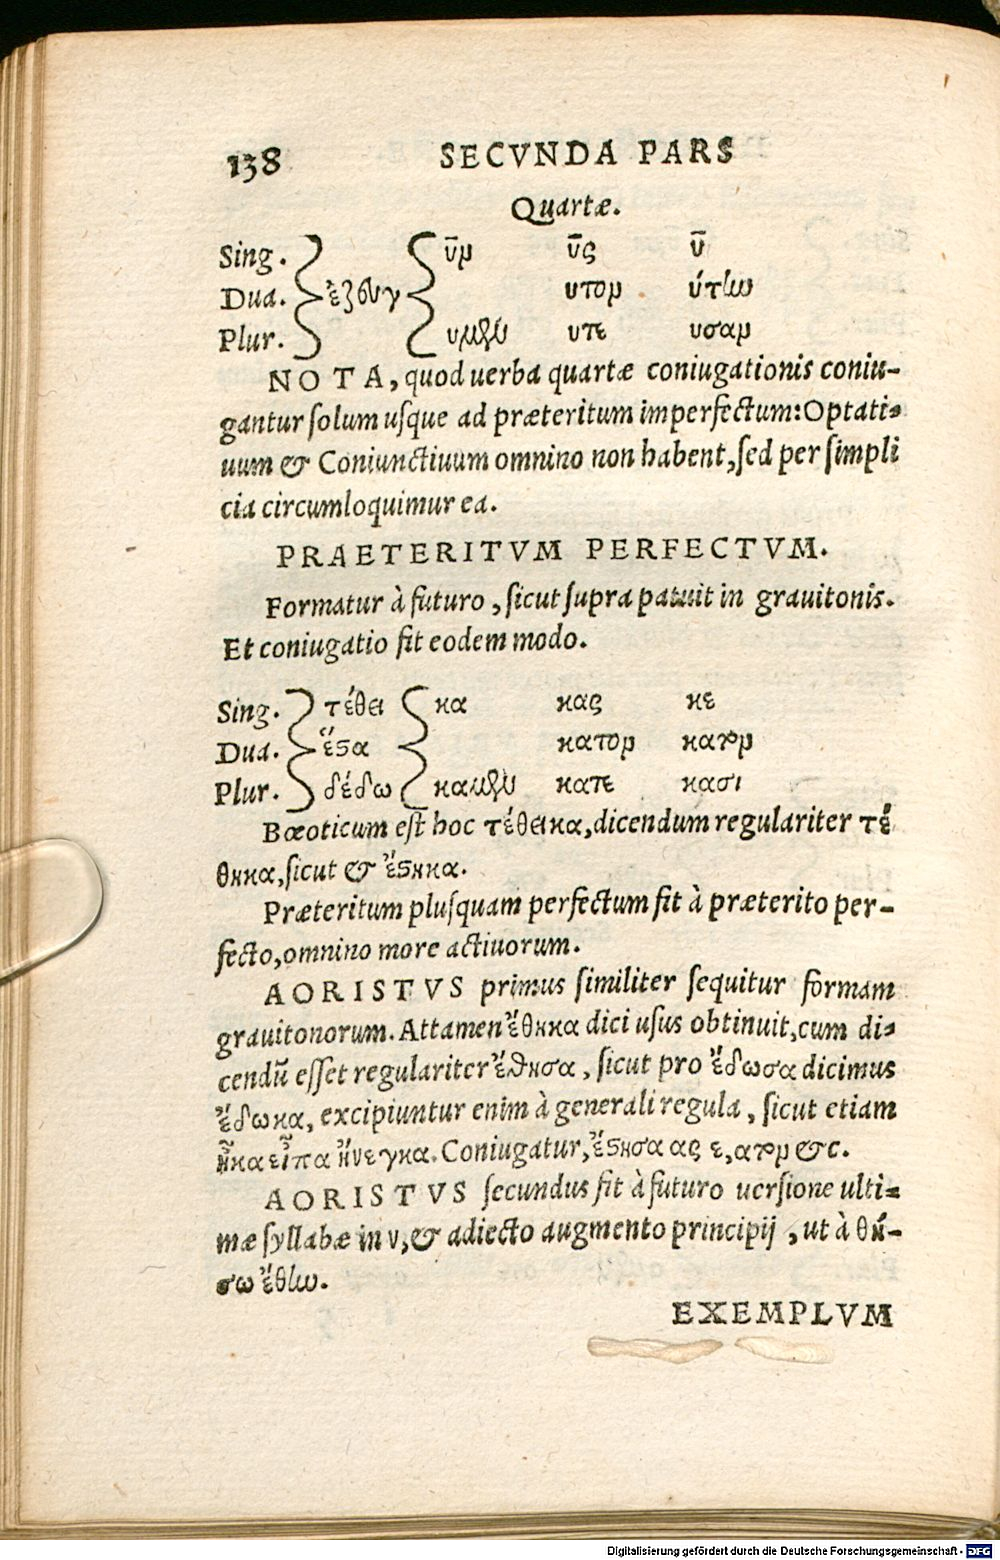 138 SECVNDA PARS
Quartæ.
Sing. ῡν ῡς ῡ
Dua. ἐζευγ υτον ύτην
Plur. υμεν υτε υσαν
NOTA, quod uerba quartæ coniugationis coniu-
gantur ſolum uſque ad præteritum imperfectum: Optati-
uum & Coniunctiuum omnino non habent, ſed per ſimpli
cia circumloquimur ea.
PRAETERITVM PERFECTVM.
Formatur à futuro, ſicut ſupra patuit in grauitonis.
Et coniugatio fit eodem modo.
Sing. τέθει κα κας κε
Dua. ἕϛα κατον κατον
Plur. δέδω καμεν κατε κασι
Bœoticum eſt hoc τέθεικα, dicendum regulariter τέ
θηκα, ſicut & ἕϛηκα.
Præteritum pluſquam perfectum fit à præterito per-
fecto, omnino more actiuorum.
AORISTVS primus ſimiliter ſequitur formam
grauitonorum. Attamen ἔθηκα dici uſus obtinuit, cum di-
cendū eſſet regulariter ἔθησα, ſicut pro ἔδωσα dicimus
ἔδωκα, excipiuntur enim à generali regula, ſicut etiam
ἧκα εἶπα ἤνεγκα. Coniugatur, ἔϛησα ας ε, ατον &c.
AORISTVS secundus fit à futuro uerſione ulti-
mæ ſyllabæ in ν, & adiecto augmento principij, ut à θή-
σω ἔθην.
EXEMPLVM
Digitalisierung gefördert durch die Deutsche Forschungsgemeinschaft - DFG